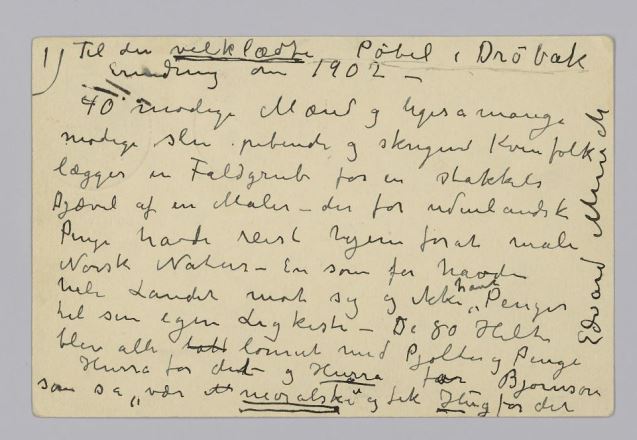 1) Til den velklædte Pöbel i Dröbak
Erindring om 1902 –
40 modige Mænd og ligesamange
modige slu pibende og skrigend Kvinfolk
lægger en Faldgrub for en stakkels
Djævel af en Maler – der for udenlandsk
Penge havde reist hjem forat male
Norsk Natur – En som før havde
hele Landet mot sig og ikke havt „Penger
til sin egen Ligkiste – De 80 Helte
blev alle lönnet med Pjolter og Penge
Hurra for det og Hurra for Björnson
som sa „vær moralske" og fik Hug for det
Edvard Munch